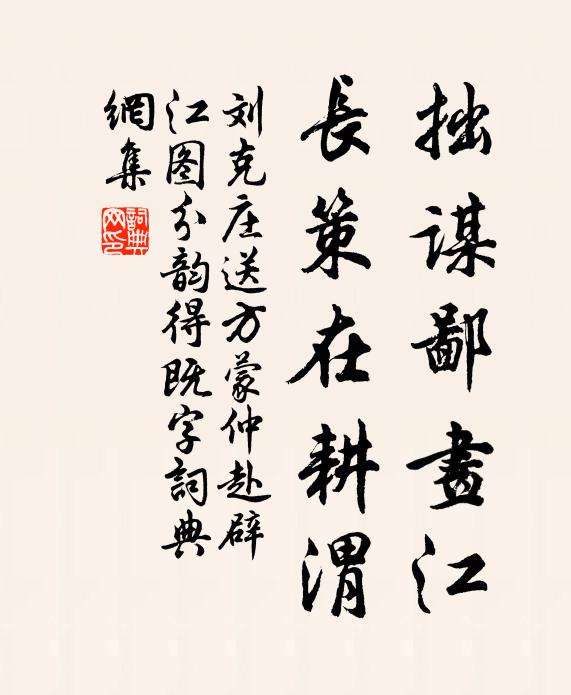 拙谋鄙畫江
長策在耕渭
刘克庄送方蒙仲赴辟
江图分韵得既字詞典
網集
詞典网印